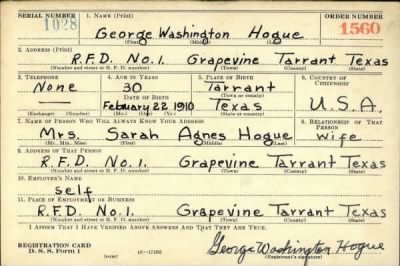 SERIAL NUMBER 1. NAME (Print) ORDER NUMBER
1028 George Washington Hogue 1560
(First) (Middle) (Last)
2. ADDRESS (Print)
R.F.D. No. 1. Grapevine Tarrant Texas
(Number and street or R. F. D. number) (Town) (County) (State)
3. TELEPHONE 4. AGE IN YEARS 5. PLACE OF BIRTH 6. COUNTRY OF CITIZENSHIP
None 30 Tarrant
DATE OF BIRTH (Town or county)
— February 22 1910 Texas U.S.A.
(Exchange) (Number) (Mo.) (Day) (Yr.) (State or country)
7. NAME OF PERSON WHO WILL ALWAYS KNOW YOUR ADDRESS 8. RELATIONSHIP OF THAT PERSON
Mrs. Sarah Agnes Hogue Wife
(Mr., Mrs., Miss) (First) (Middle) (Last)
9. ADDRESS OF THAT PERSON
R.F.D. No. 1. Grapevine Tarrant Texas
(Number and street or R. F. D. number) (Town) (County) (State)
10. EMPLOYER'S NAME
self
11. PLACE OF EMPLOYMENT OR BUSINESS
R.F.D. No. 1. Grapevine Tarrant Texas
(Number and street or R. F. D. number) (Town) (County) (State)
I AFFIRM THAT I HAVE VERIFIED ABOVE ANSWERS AND THAT THEY ARE TRUE.
REGISTRATION CARD George Washington Hogue
D. S. S. Form 1 (Registrant's signature)